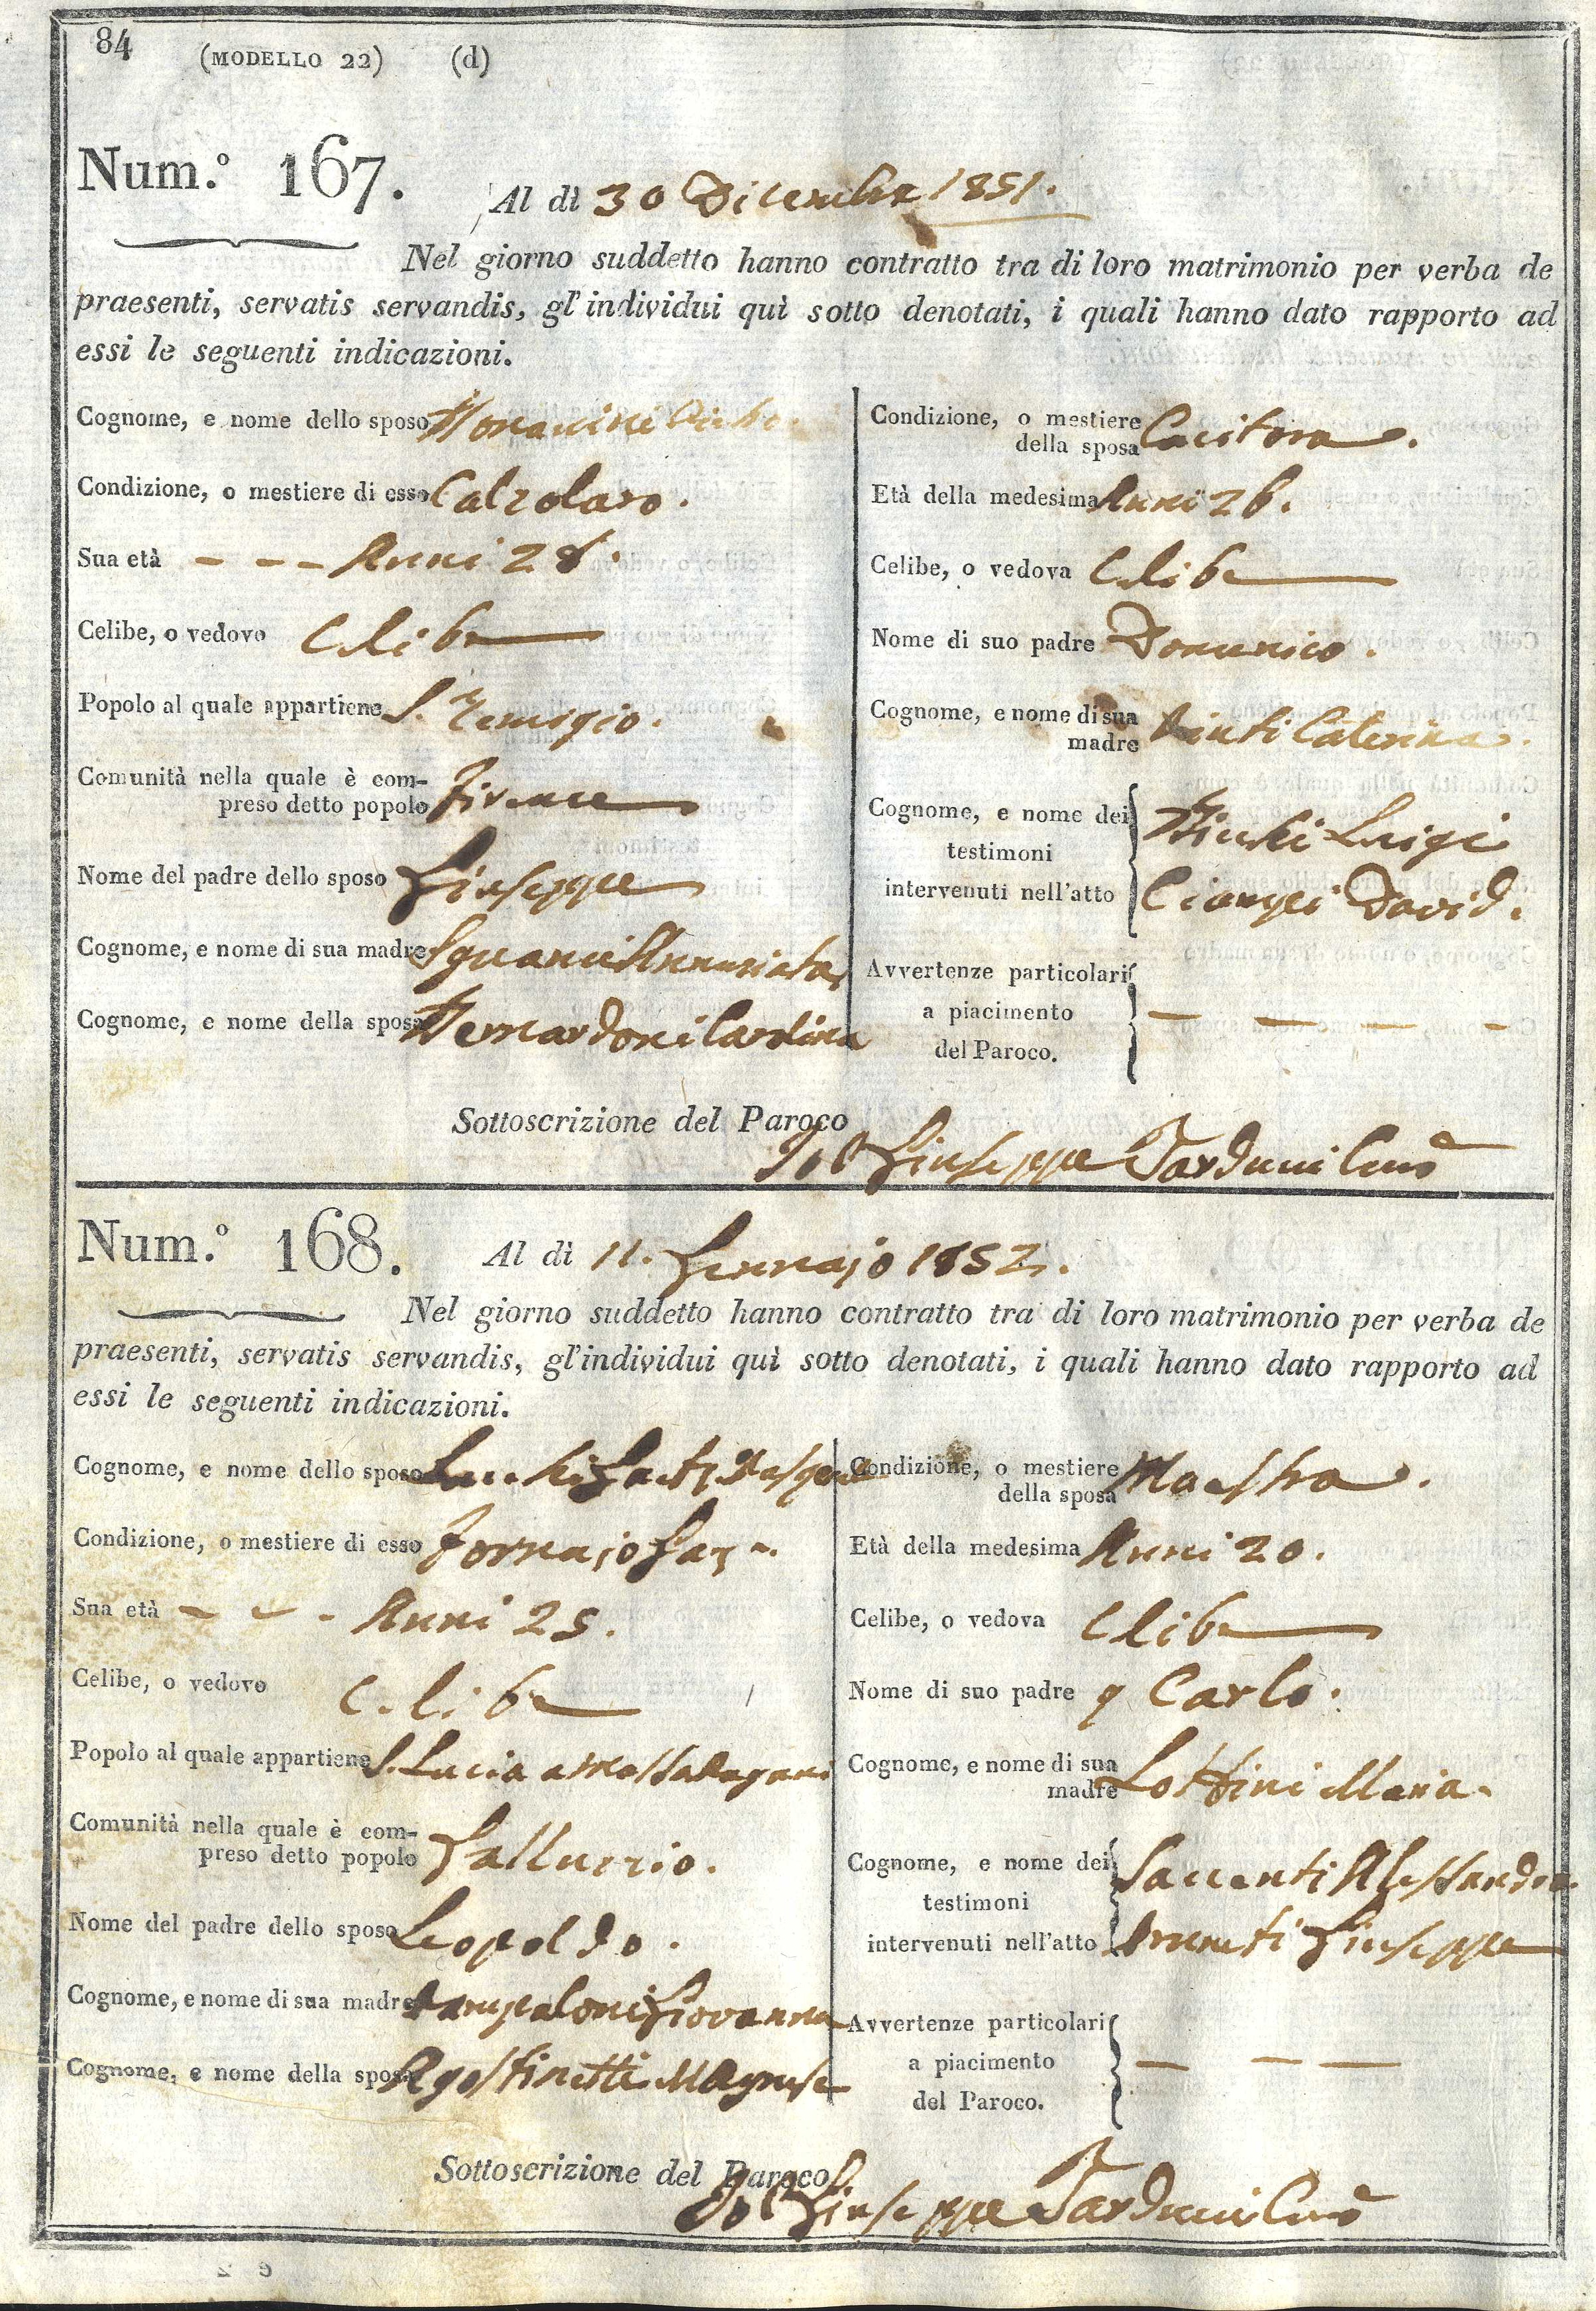 84 (MODELLO 22) (d)
Num.º 167.
Al dì 30 Dicembre 1851.
Nel giorno suddetto hanno contratto tra di loro matrimonio per verba de
praesenti, servatis servandis, gl'individui quì sotto denotati, i quali hanno dato rapporto ad
essi le seguenti indicazioni.
Cognome, e nome dello sposo
Condizione, o mestiere di esso Calzolaro.
Sua età - - - Anni 28.
Celibe, o vedovo Celibe
Popolo al quale appartiene S. Remigio.
Comunità nella quale è com-
preso detto popolo Firenze
Nome del padre dello sposo Giuseppe
Cognome, e nome di sua madre Sguanci Annunziata
Cognome, e nome della sposa Bernardoni Carolina
Condizione, o mestiere
della sposa Cucitora.
Età della medesima Anni 26.
Celibe, o vedova Celibe
Nome di suo padre Domenico.
Cognome, e nome di sua
madre Caterina.
Cognome, e nome dei
testimoni
intervenuti nell'atto
Luigi
Ciampi David.
Avvertenze particolari
a piacimento
del Paroco.
- - - -
Sottoscrizione del Paroco
Giuseppe Tarducci
Num.º 168.
Al dì 11. Gennajo 1852.
Nel giorno suddetto hanno contratto tra di loro matrimonio per verba de
praesenti, servatis servandis, gl'individui quì sotto denotati, i quali hanno dato rapporto ad
essi le seguenti indicazioni.
Cognome, e nome dello sposo
Condizione, o mestiere di esso Fornajo
Sua età - - - Anni 25.
Celibe, o vedovo Celibe
Popolo al quale appartiene S. Lucia a Massapagani
Comunità nella quale è com-
preso detto popolo Galluzzo.
Nome del padre dello sposo Leopoldo.
Cognome, e nome di sua madre Pampaloni Giovanna
Cognome, e nome della sposa Agostinetti
Condizione, o mestiere
della sposa Maestra.
Età della medesima Anni 20.
Celibe, o vedova Celibe
Nome di suo padre q Carlo.
Cognome, e nome di sua
madre Lottini Maria.
Cognome, e nome dei
testimoni
intervenuti nell'atto
Saccenti Alessandro.
Giuseppe
Avvertenze particolari
a piacimento
del Paroco.
- - -
Sottoscrizione del Paroco
Giuseppe Tarducci